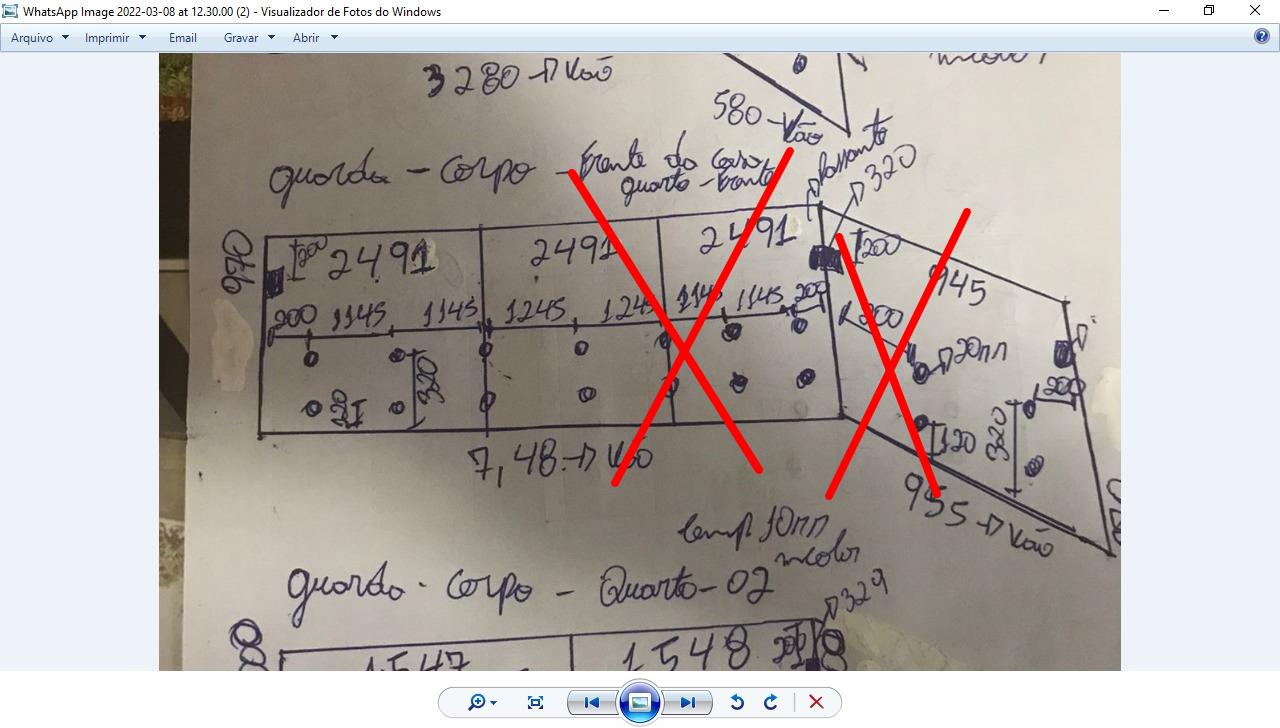 WhatsApp Image 2022-03-08 at 12.30.00 (2) - Visualizador de Fotos do Windows
Arquivo Imprimir Email Gravar Abrir
3280 → Vão
580 - Vão
guarda - corpo - frente da casa
quarto - frente
passante
320
970
200
2491
2491
2491
200
945
200 1145 1145 1245 1245 1145 1145 200
200
20mm
320
120
200
120
320
7,48 → Vão
955 → Vão
temp 10mm
incolor
guarda - corpo - Quarto - 02
329
1547
1548